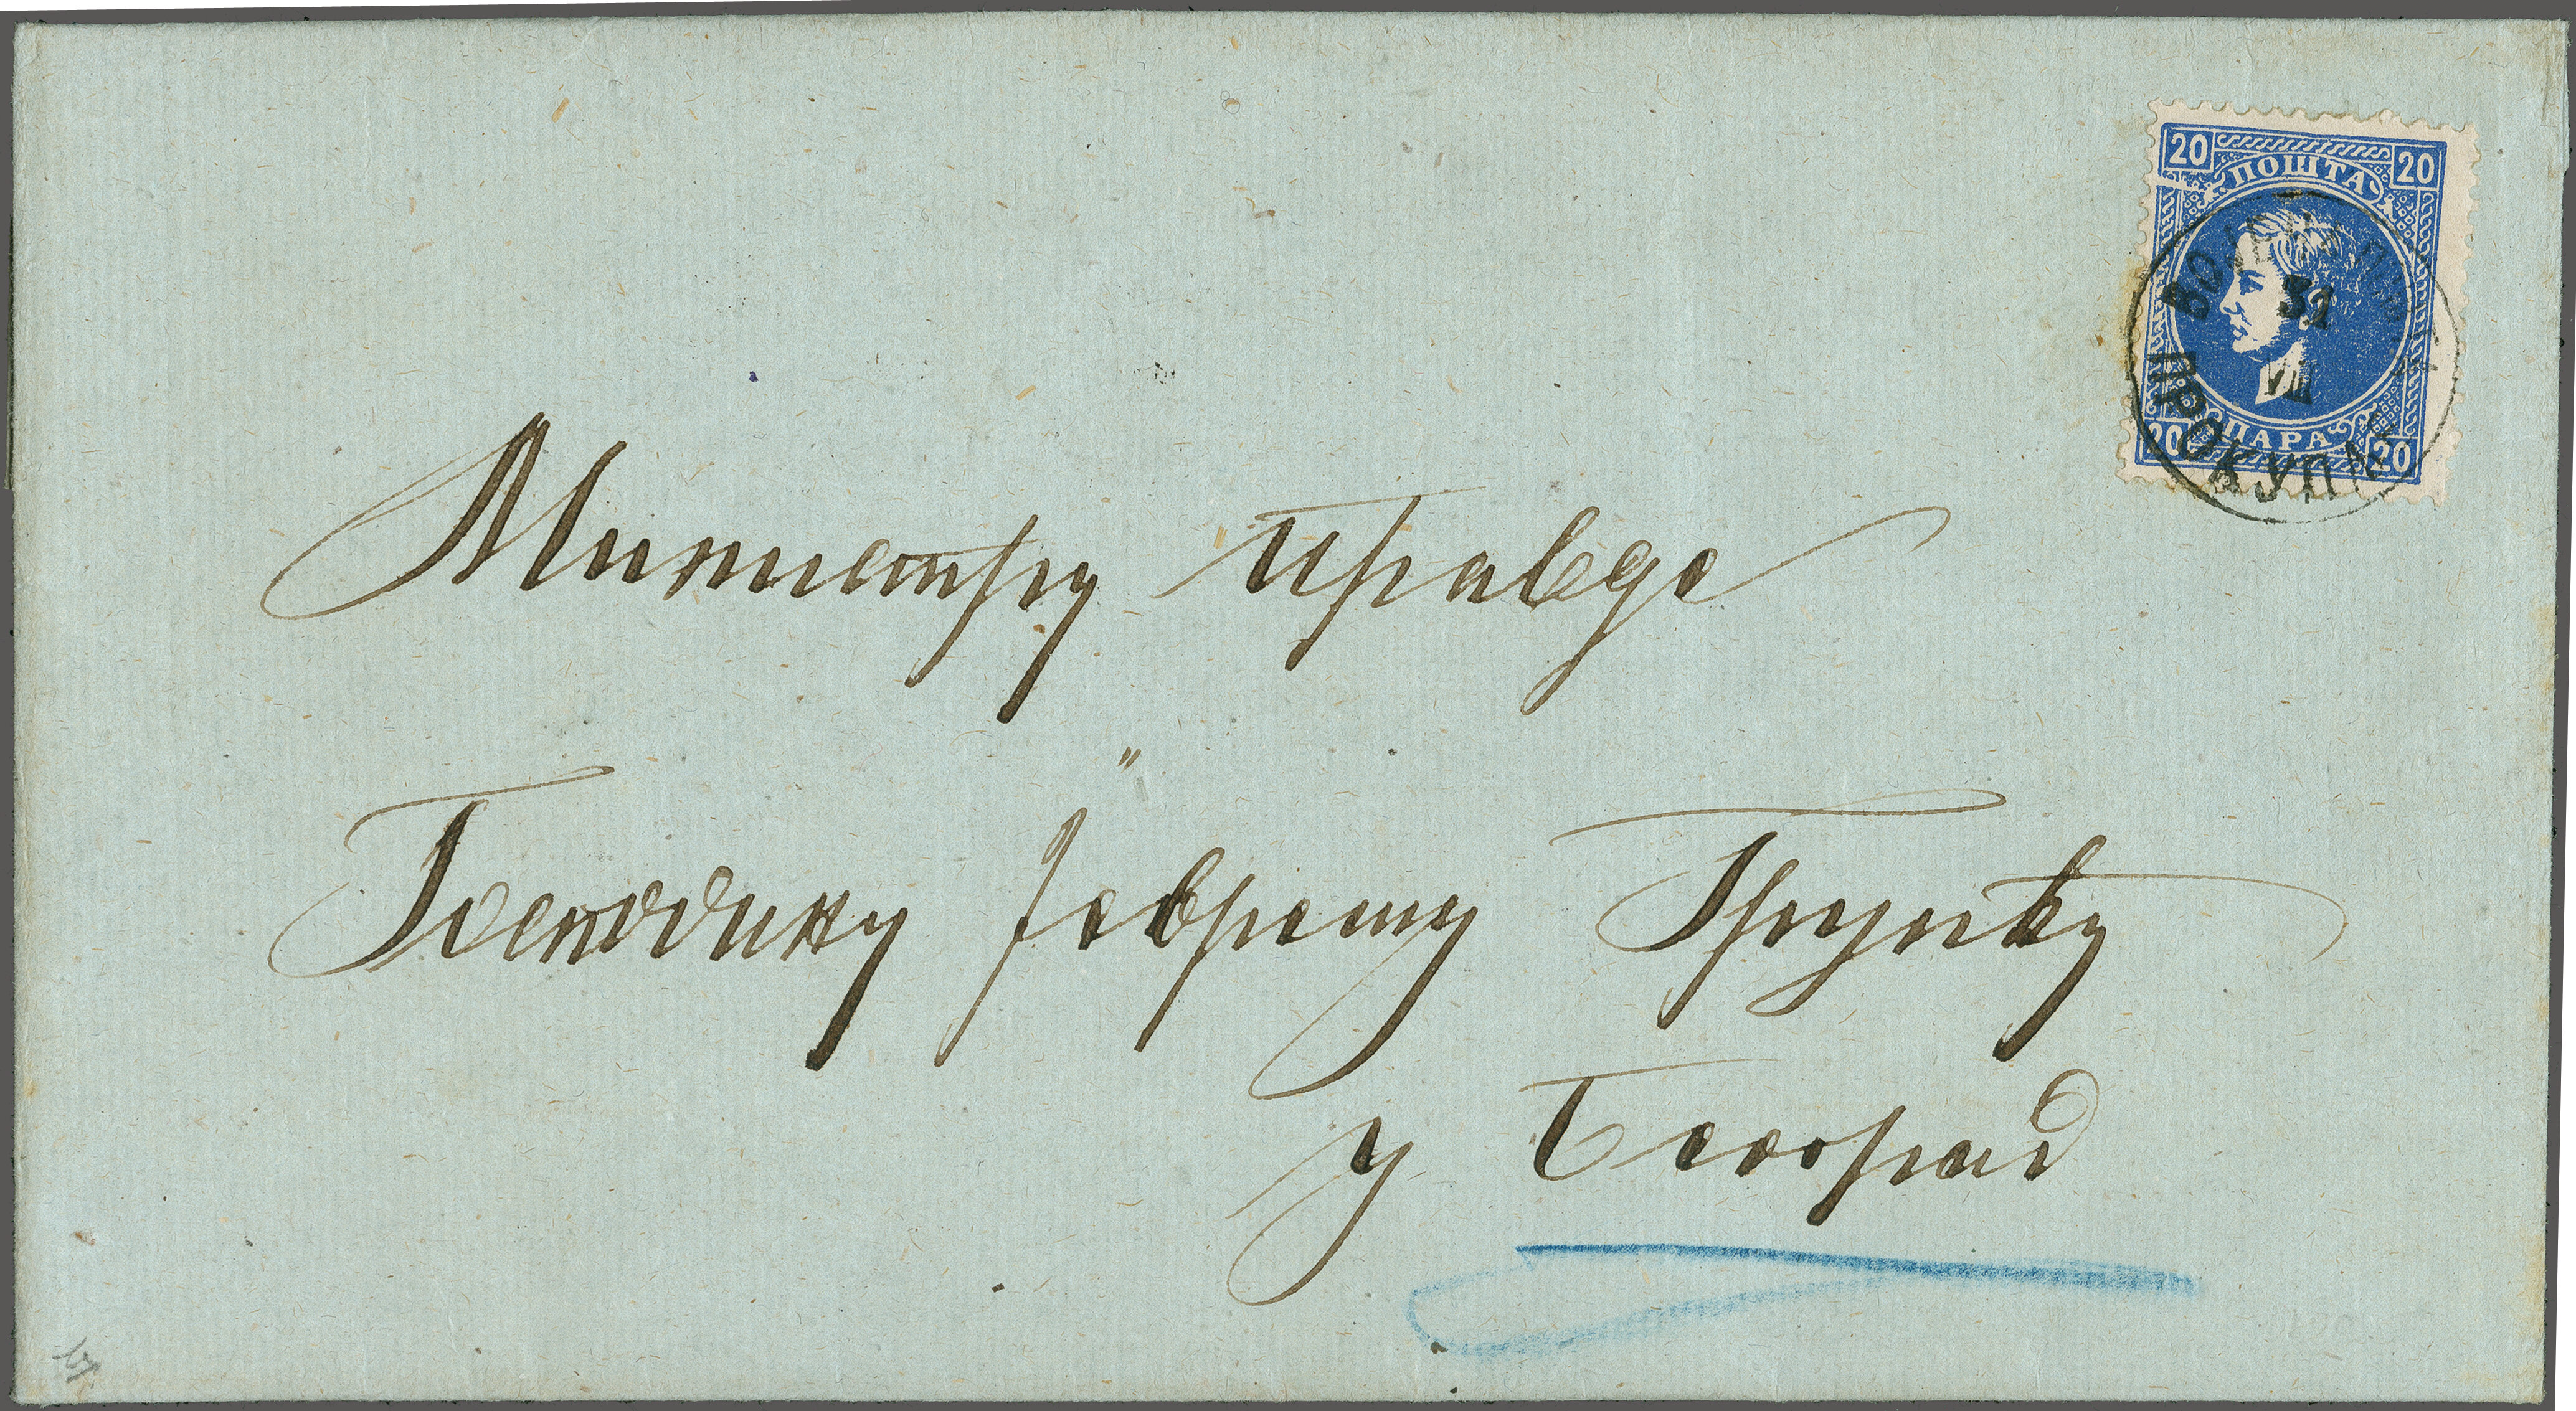 20 ПОШТА 20
31
VII
ПРОКУПЉЕ
20 ПАРА 20
Министру правде
"
Господину Јеврему Грујићу
у Београд